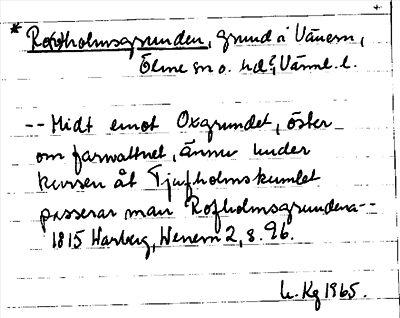 * Rofholmsgrunden, grund i Vänern,
Ölme sn o. hd, Värml. l.
-- Midt emot Oxgrundet, öster
om farwattnet, ännu under
kursen åt Tjufholmskumlet
passerar man Rofholmsgrundena --
1815 Warberg, Wenern 2, s. 96.
Kg 1965.